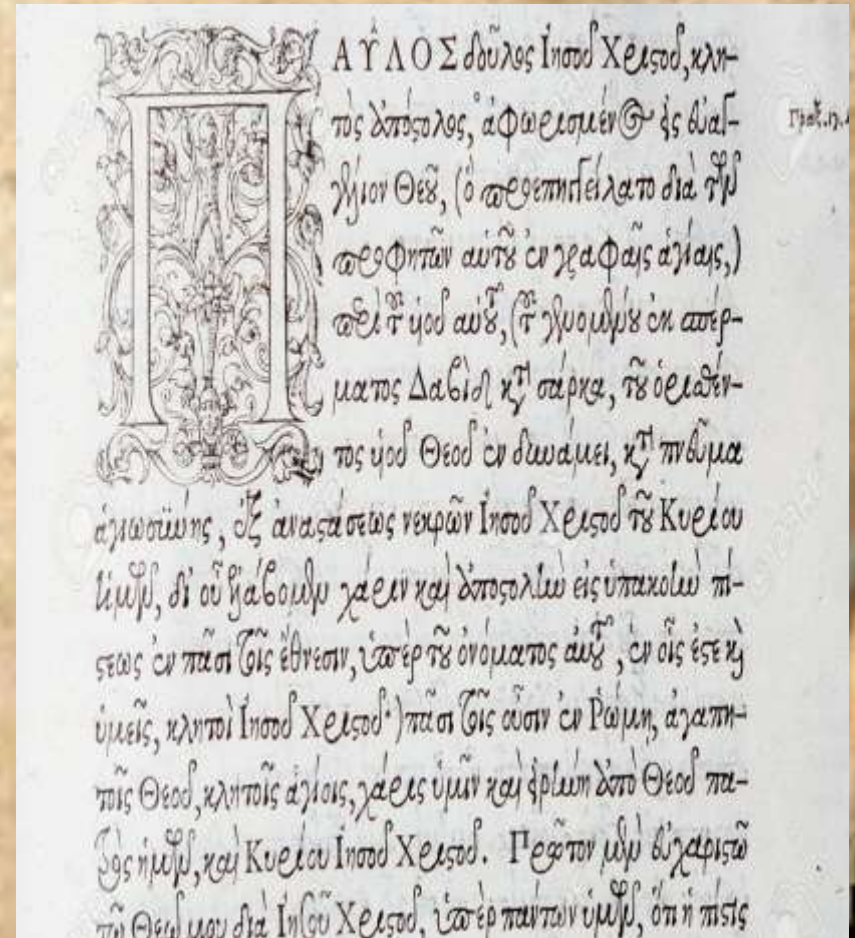 ΠΑῦΛΟΣ δοῦλος Ἰησοῦ Χριστοῦ, κλη-
τὸς ἀπόστολος, ἀφωρισμένος εἰς εὐαγ-
γέλιον Θεοῦ, (ὃ προεπηγγείλατο διὰ τῶν
προφητῶν αὐτοῦ ἐν γραφαῖς ἁγίαις,)
περὶ τοῦ υἱοῦ αὐτοῦ, (τοῦ γενομένου ἐκ σπέρ-
ματος Δαβὶδ κατὰ σάρκα, τοῦ ὁρισθέν-
τος υἱοῦ Θεοῦ ἐν δυνάμει, κατὰ πνεῦμα
ἁγιωσύνης, ἐξ ἀναστάσεως νεκρῶν Ἰησοῦ Χριστοῦ τοῦ Κυρίου
ἡμῶν, δι' οὗ ἐλάβομεν χάριν καὶ ἀποστολὴν εἰς ὑπακοὴν πί-
στεως ἐν πᾶσι τοῖς ἔθνεσιν, ὑπὲρ τοῦ ὀνόματος αὐτοῦ, ἐν οἷς ἐστε καὶ
ὑμεῖς, κλητοὶ Ἰησοῦ Χριστοῦ·) πᾶσι τοῖς οὖσιν ἐν Ῥώμῃ, ἀγαπη-
τοῖς Θεοῦ, κλητοῖς ἁγίοις, χάρις ὑμῖν καὶ εἰρήνη ἀπὸ Θεοῦ πα-
τρὸς ἡμῶν, καὶ Κυρίου Ἰησοῦ Χριστοῦ. Πρῶτον μὲν εὐχαριστῶ
τῷ Θεῷ μου διὰ Ἰησοῦ Χριστοῦ, ὑπὲρ πάντων ὑμῶν, ὅτι ἡ πίστις